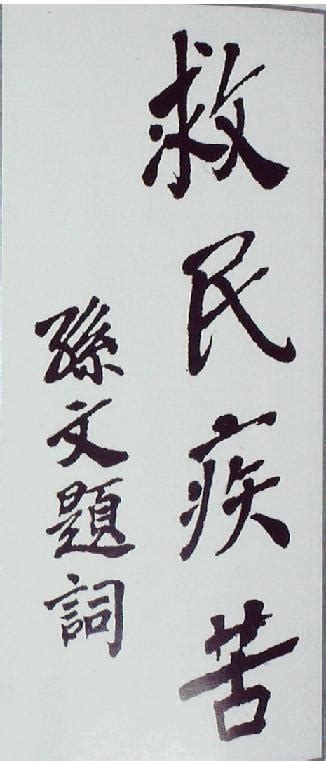 救民疾苦
孫文題詞